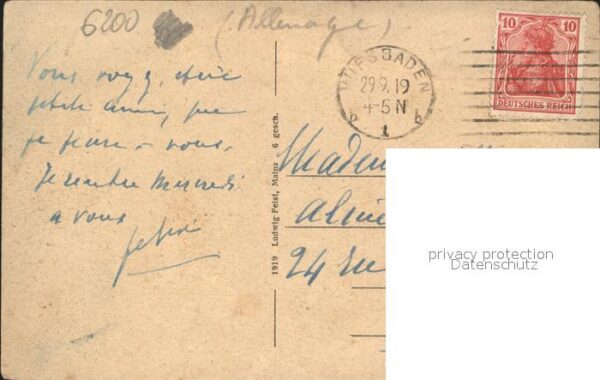 6200
(Allemagne)
Vous voyez, chère
petite amie, que
je pense à vous.
Je rentre Mercredi
a vous
1919 Ludwig Feist, Mainz 6 gesch.
WIESBADEN
29 9. 19
4-5 N
b 1 b
10 10
DEUTSCHES REICH
Madem
24 Ru
privacy protection
Datenschutz